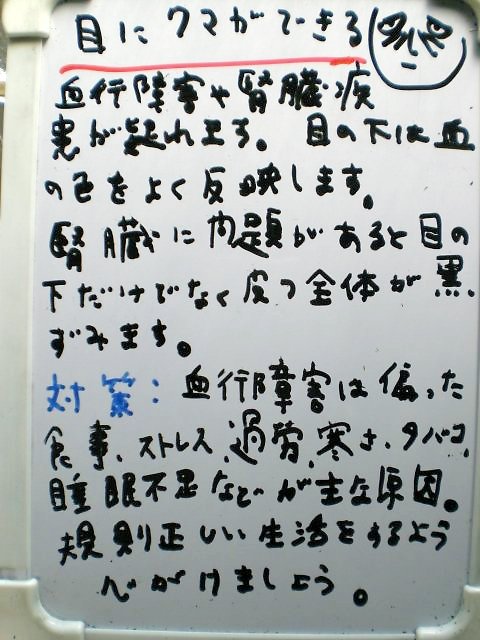 目にクマができる
血行障害や腎臓疾
患が疑れます。目の下は血
の色をよく反映します。
腎臓に問題があると目の
下だけでなく皮フ全体が黒
ずみます。
対策：血行障害は偏った
食事、ストレス、過労、寒さ、タバコ、
睡眠不足などが主な原因。
規則正しい生活をするよう
心がけましょう。